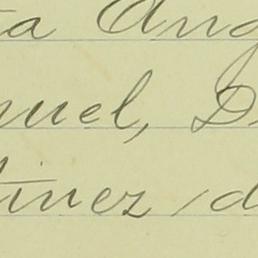 ta Ang
nuel, D
tinez, d